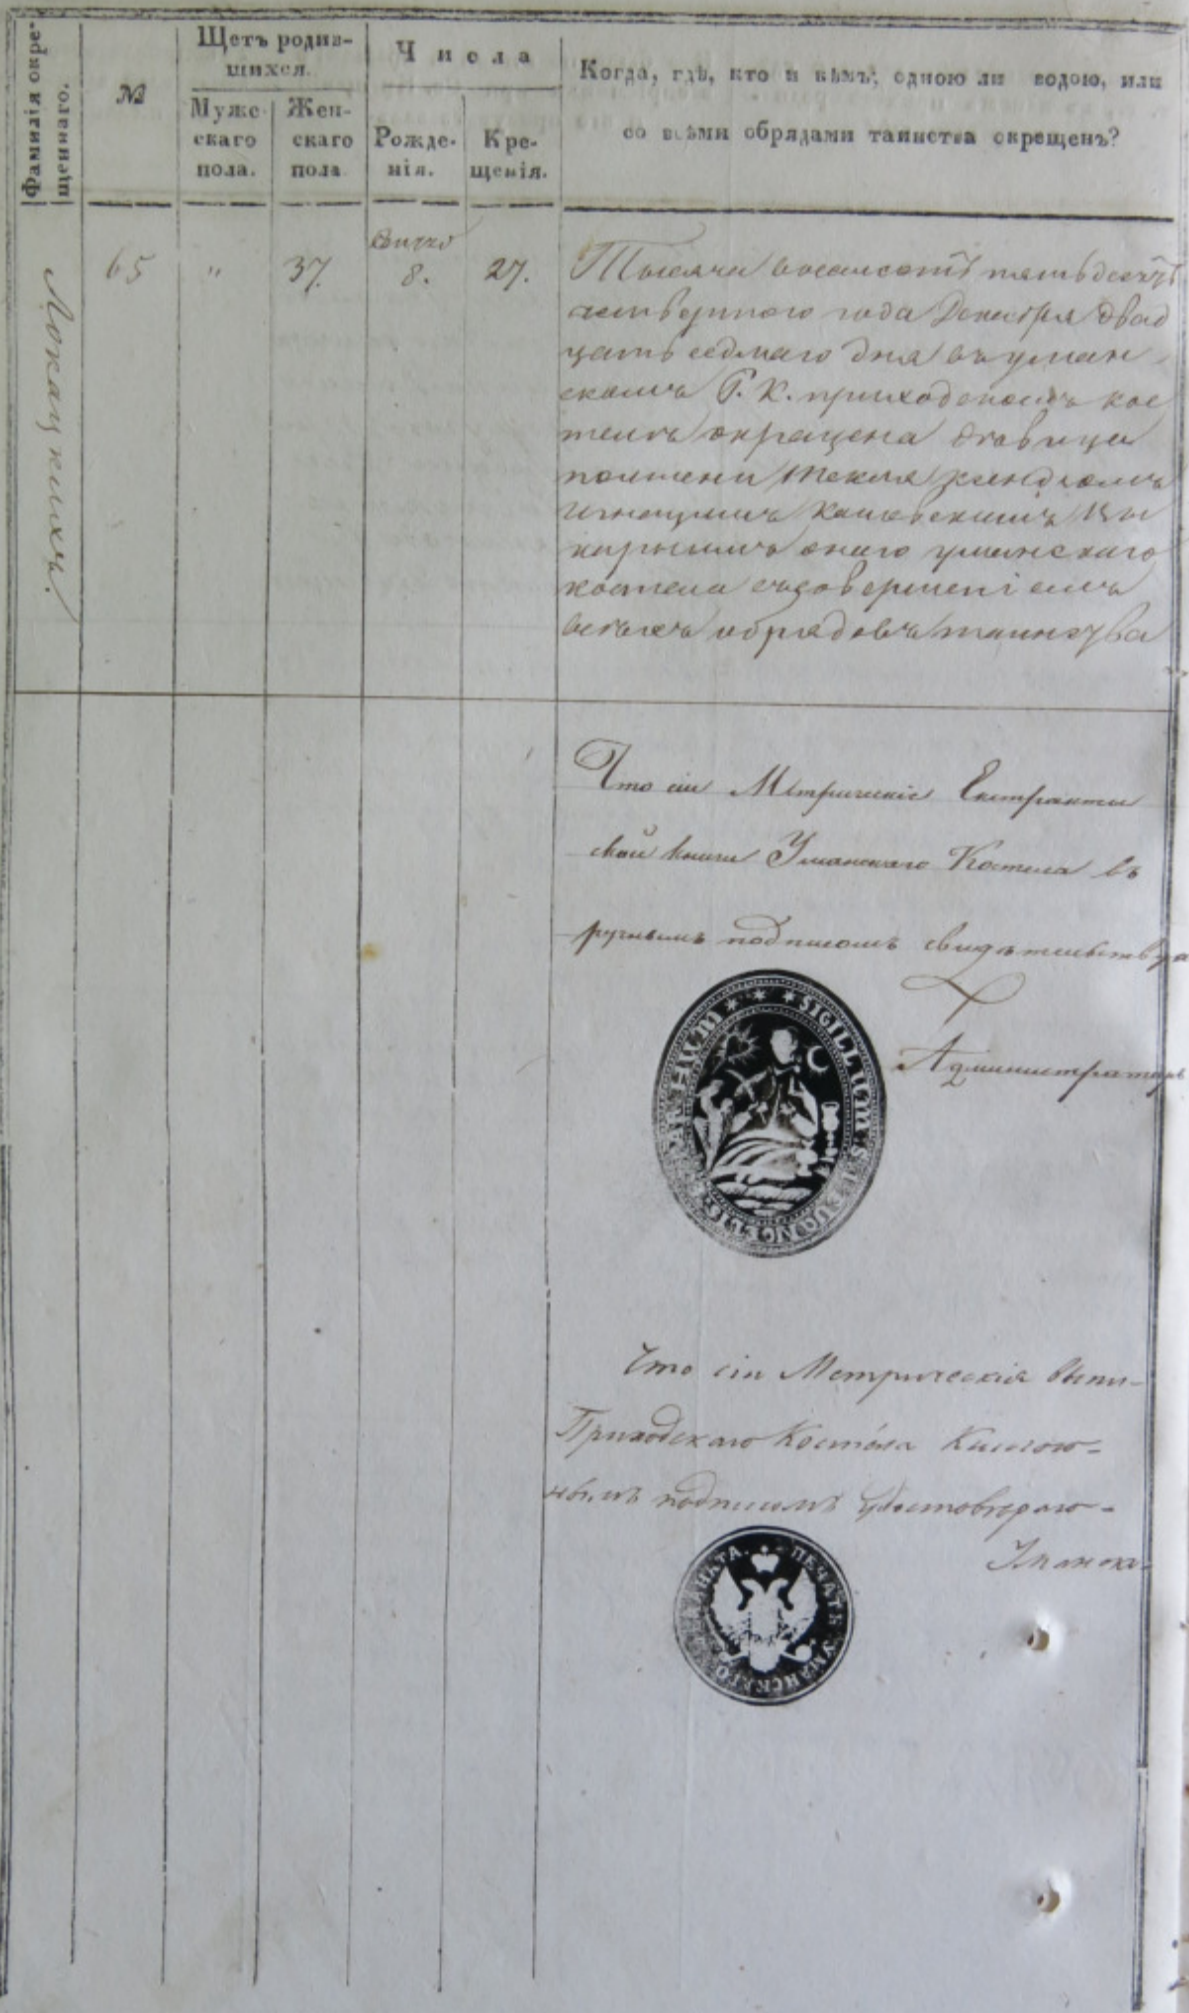 Фамилія окре-
щеннаго.
№
Щетъ родив-
шихся.
Муже-
скаго
пола.
Жен-
скаго
пола
Числа
Рожде-
нія.
Кре-
щенія.
Когда, гдѣ, кто и кѣмъ, одною ли водою, или
со всѣми обрядами таинства окрещенъ?
65
"
37.
8.
27.
Тысяча восемсотъ пятьдесятъ
четвертого года Декабря двад
цать седмаго дня въ уман-
скомъ Р. К. приходскомъ кос
телѣ окрещена девица
имени Текля ксендзомъ
Игнацимъ Ви
карнымъ онаго уманскаго
костела съ совершеніемъ
всѣхъ обрядовъ таинства
Что сіи Метрическіе Екстракти
свой книги Уманскаго Костела въ
ручнымъ подписомъ свидѣтельствуа
Администраторъ
SIGILLUM S. EVANGELIS
Что сіи Метрическія выпи-
Приходскаго Костёла
нымъ подписомъ удостовѣраю-
Уманск-
ПЕЧАТЬ УМАНСКАГО